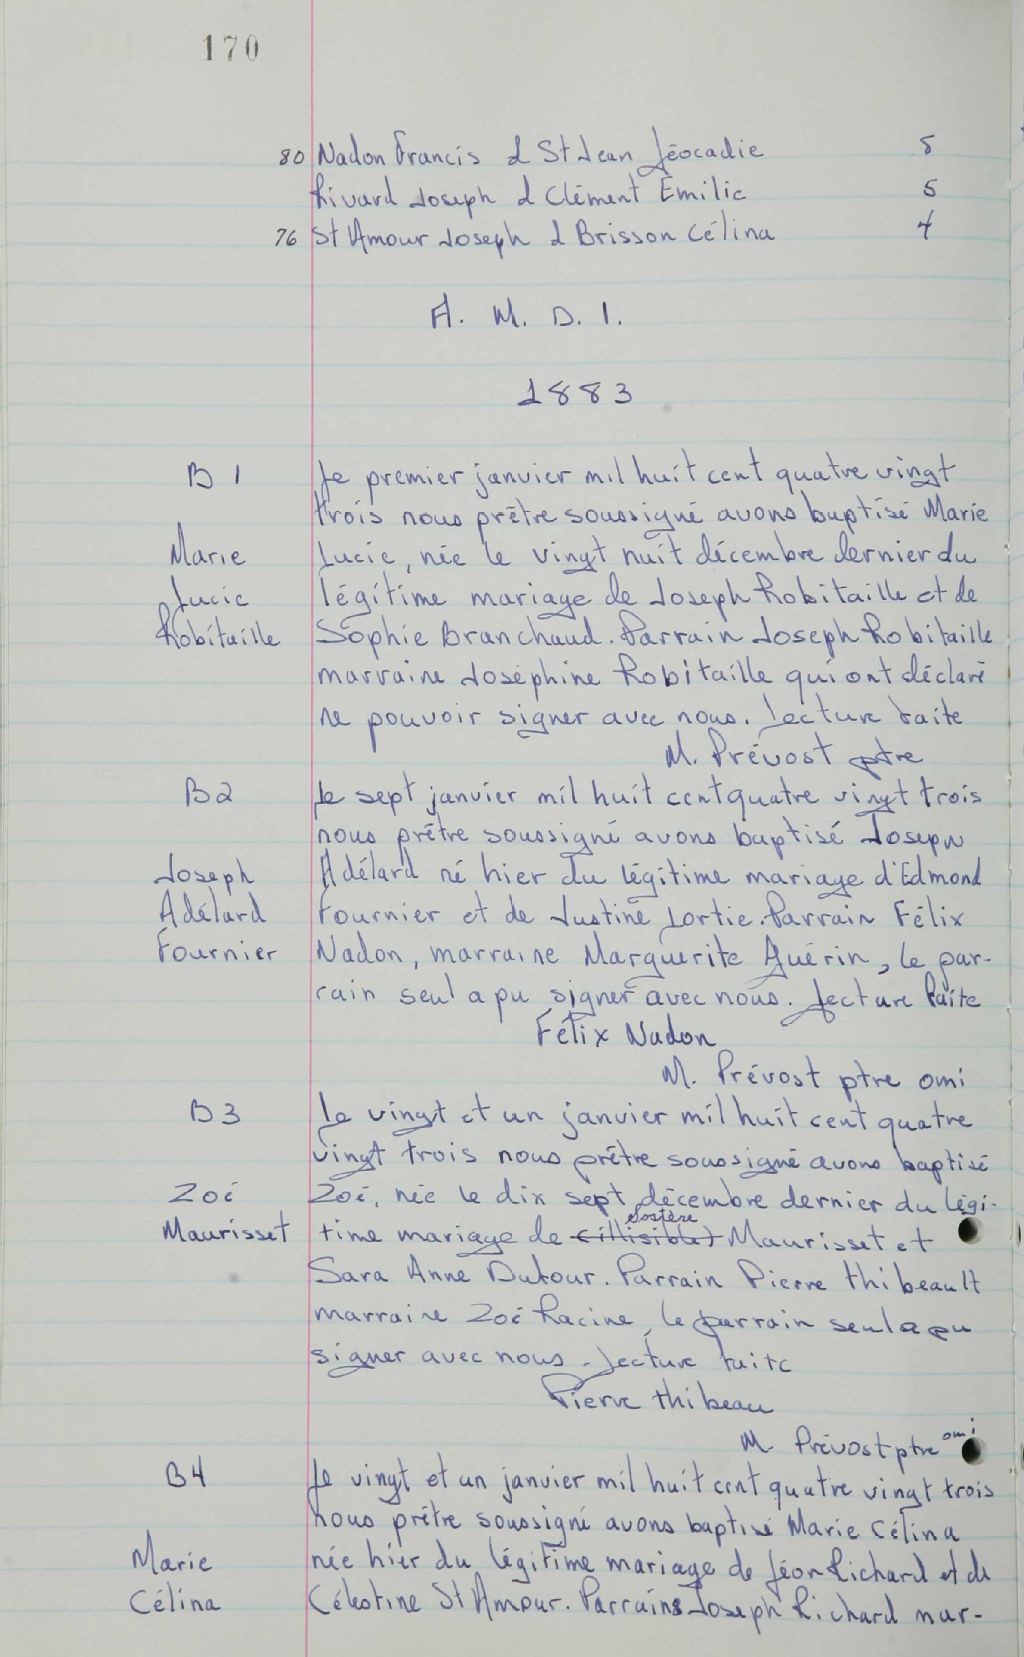 170
80 Nadon Francis & St Jean Léocadie 5
Rivard Joseph & Clément Emilie 5
76 St Amour Joseph & Brisson Célina 4
A. M. D. I.
1883
B 1 Le premier janvier mil huit cent quatre vingt
trois nous prêtre soussigné avons baptisé Marie
Marie Lucie, née le vingt huit décembre dernier du
Lucie légitime mariage de Joseph Robitaille et de
Robitaille Sophie Branchaud. Parrain Joseph Robitaille
marraine Joséphine Robitaille qui ont déclaré
ne pouvoir signer avec nous. Lecture faite
M. Prévost ptre
B2 Le sept janvier mil huit cent quatre vingt trois
nous prêtre soussigné avons baptisé Joseph
Joseph Adélard né hier du légitime mariage d'Edmond
Adélard Fournier et de Justine Lortie. Parrain Félix
Fournier Nadon, marraine Marguerite Guérin, le par-
rain seul a pu signer avec nous. Lecture faite
Félix Nadon
M. Prévost ptre omi
B3 Le vingt et un janvier mil huit cent quatre
vingt trois nous prêtre soussigné avons baptisé
Zoé Zoé, née le dix sept décembre dernier du légi-
Maurisset time mariage de (illisible) Sostène Maurisset et
Sara Anne Dufour. Parrain Pierre Thibeault
marraine Zoé Racine, le parrain seul a pu
signer avec nous. Lecture faite
Pierre Thibeau
M Prévost ptre omi
B4 Le vingt et un janvier mil huit cent quatre vingt trois
nous prêtre soussigné avons baptisé Marie Célina
Marie née hier du légitime mariage de Léon Richard et de
Célina Célestine St Amour. Parrains Joseph Richard mar-